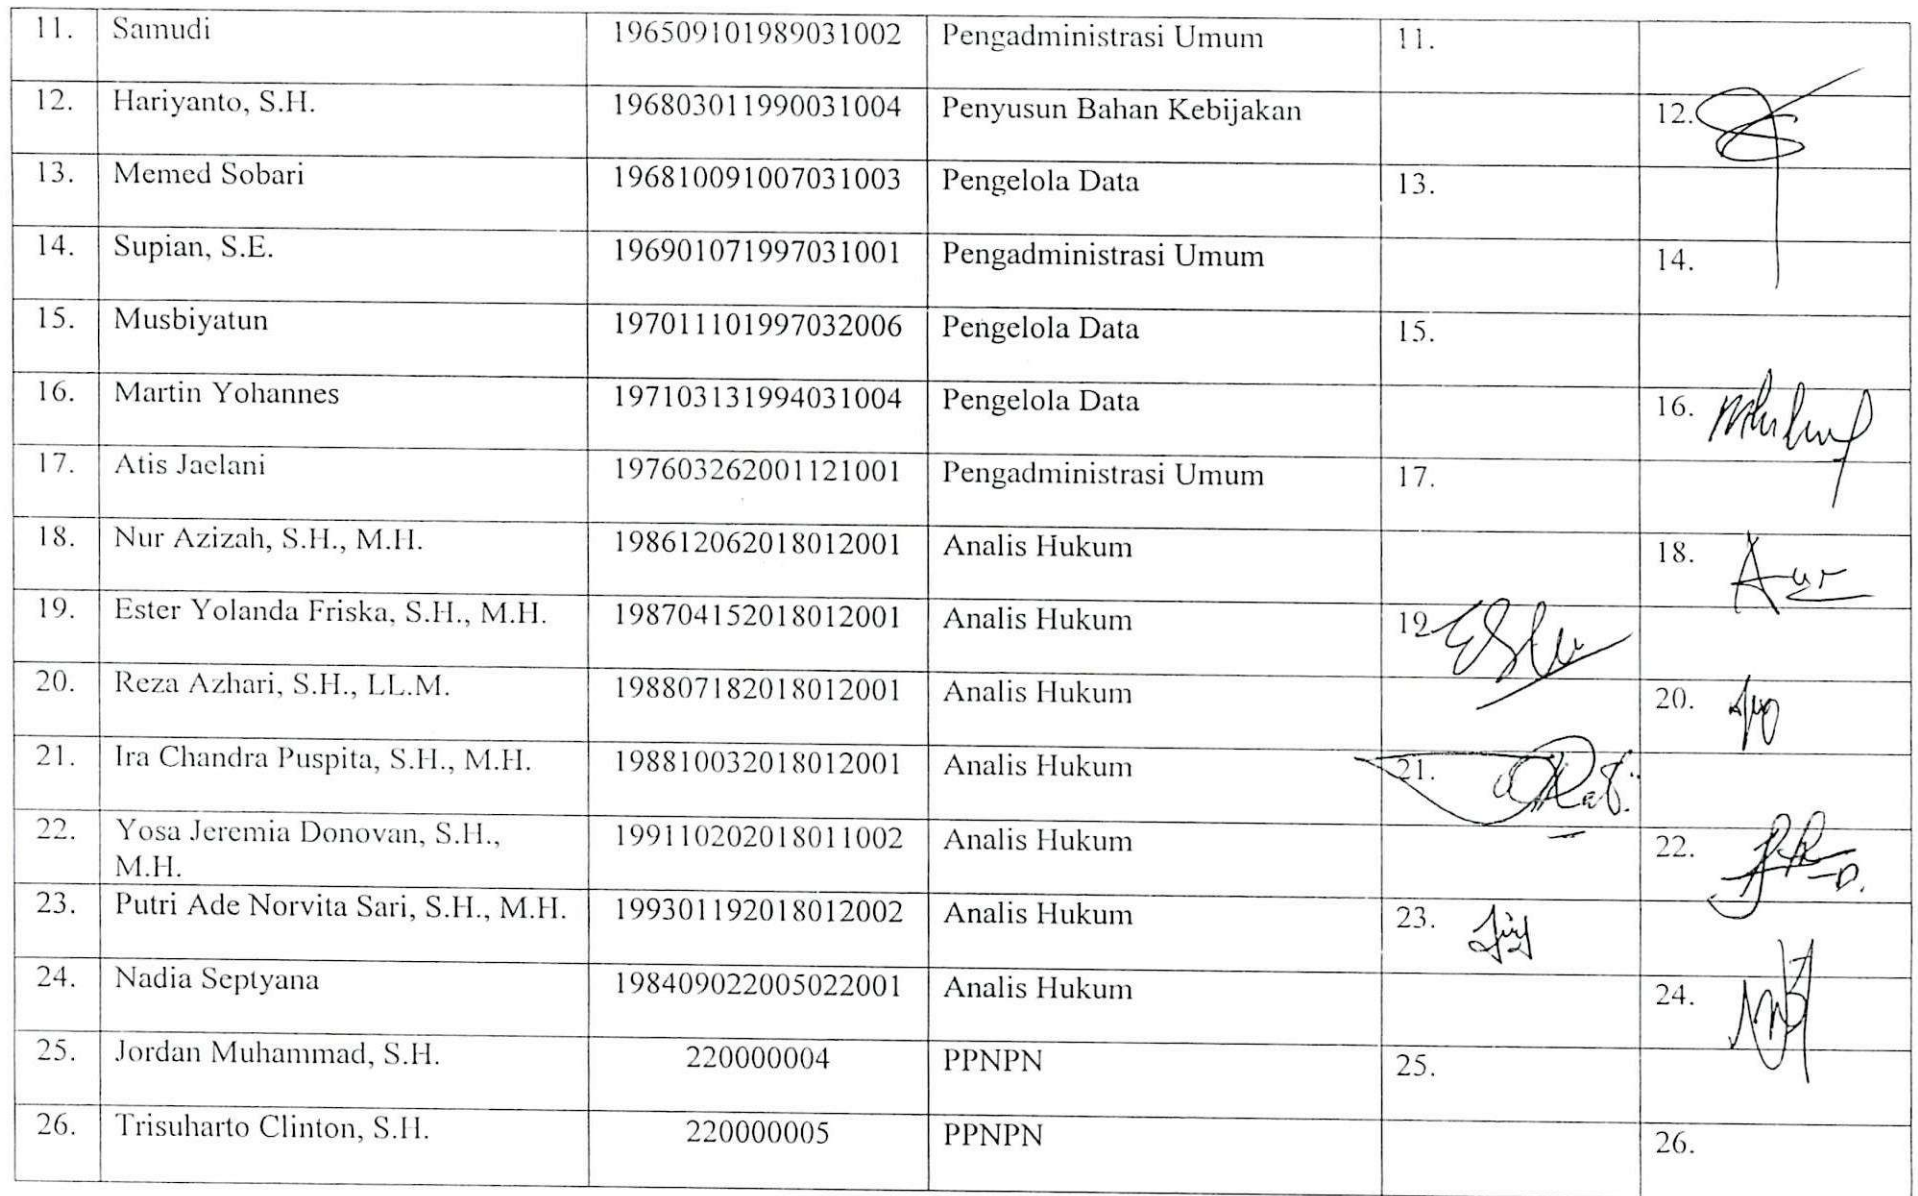 11. Samudi 196509101989031002 Pengadministrasi Umum 11.
12. Hariyanto, S.H. 196803011990031004 Penyusun Bahan Kebijakan 12.
13. Memed Sobari 196810091007031003 Pengelola Data 13.
14. Supian, S.E. 196901071997031001 Pengadministrasi Umum 14.
15. Musbiyatun 197011101997032006 Pengelola Data 15.
16. Martin Yohannes 197103131994031004 Pengelola Data 16.
17. Atis Jaelani 197603262001121001 Pengadministrasi Umum 17.
18. Nur Azizah, S.H., M.H. 198612062018012001 Analis Hukum 18.
19. Ester Yolanda Friska, S.H., M.H. 198704152018012001 Analis Hukum 19
20. Reza Azhari, S.H., LL.M. 198807182018012001 Analis Hukum 20.
21. Ira Chandra Puspita, S.H., M.H. 198810032018012001 Analis Hukum 21.
22. Yosa Jeremia Donovan, S.H., 199110202018011002 Analis Hukum 22.
M.H.
23. Putri Ade Norvita Sari, S.H., M.H. 199301192018012002 Analis Hukum 23.
24. Nadia Septyana 198409022005022001 Analis Hukum 24.
25. Jordan Muhammad, S.H. 220000004 PPNPN 25.
26. Trisuharto Clinton, S.H. 220000005 PPNPN 26.